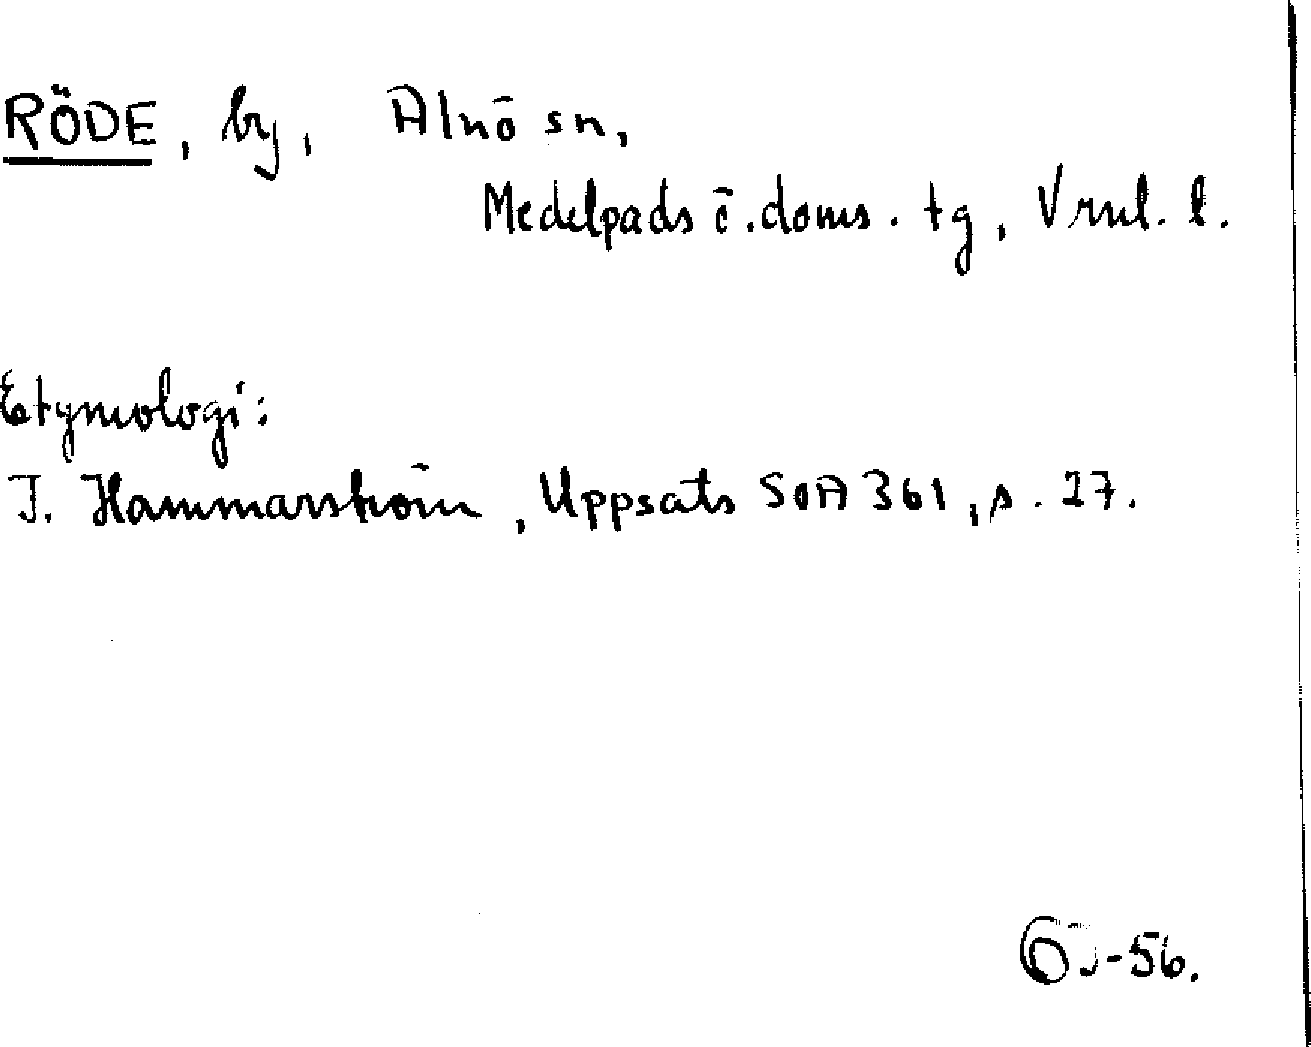 RÖDE, by, Alnö sn,
Medelpads ö. doms. tg, Vrnl. l.
Etymologi:
J. Hammarström, Uppsats SOA 361, s. 27.
-56.